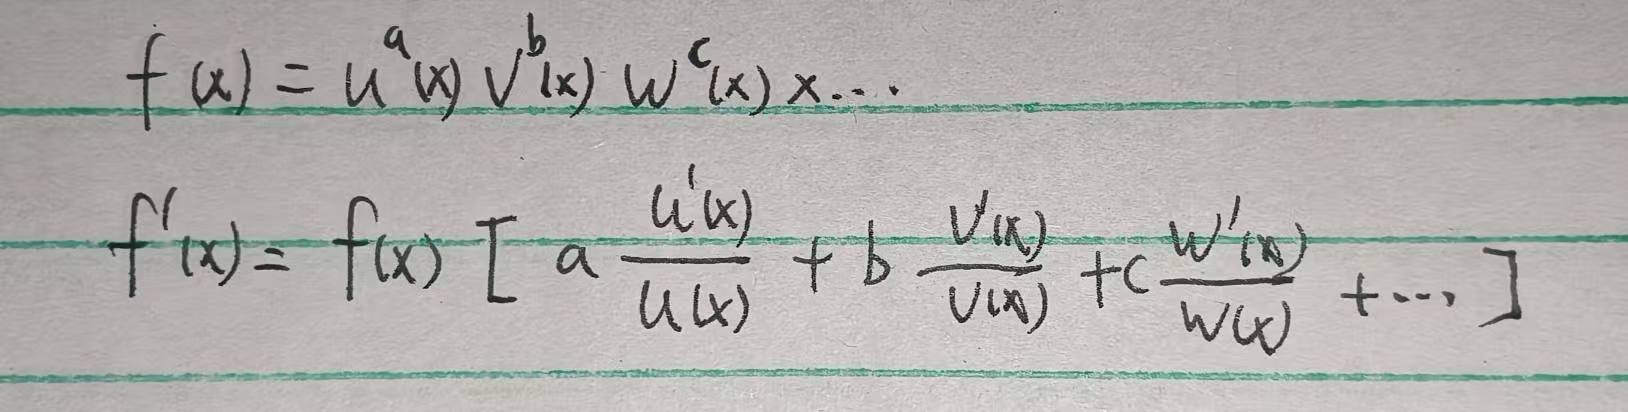 f(x) = uᵃ(x) vᵇ(x) wᶜ(x) x...
f'(x) = f(x) [ a u'(x)/u(x) + b v'(x)/v(x) + c w'(x)/w(x) + ... ]